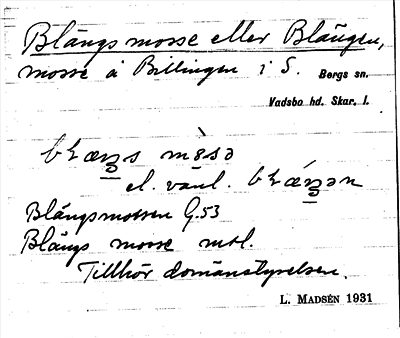 Blängs mosse eller Blängen,
mosse å Billingen i S. Bergs sn.
Vadsbo hd. Skar. l.
el. vanl.
Blängsmossen G.53
Blängs mosse mtl.
Tillhör domänstyrelsen.
L. MADSÉN 1931